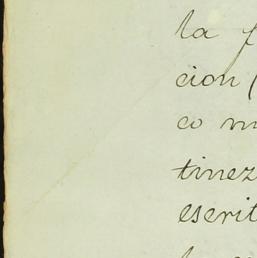 la f
cion (
co m
tinez
escrit